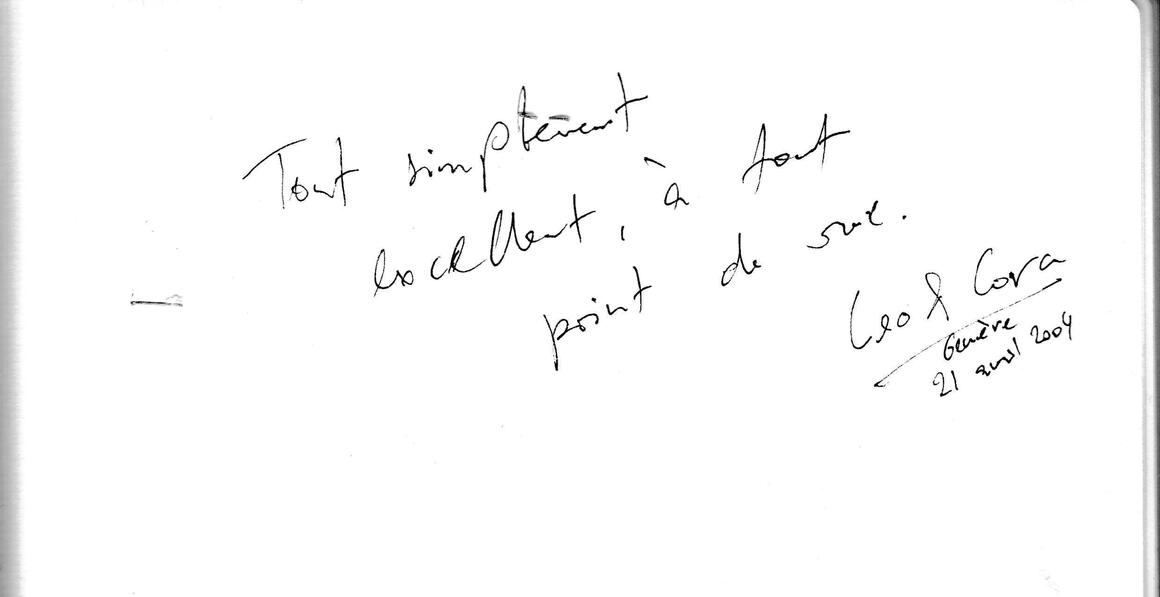 Tout simplement
excellent, à tout
point de vue.
Leo & Cora
Genève
21 avril 2004